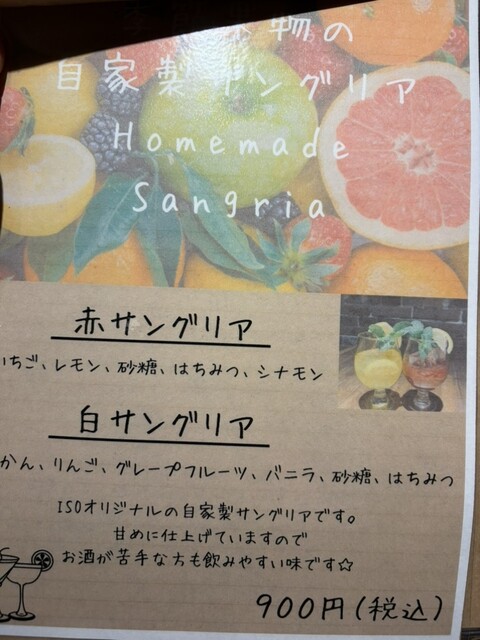 物の
自家製サングリア
Homemade
Sangria
赤サングリア
いちご、レモン、砂糖、はちみつ、シナモン
白サングリア
かん、りんご、グレープフルーツ、バニラ、砂糖、はちみつ
ISOオリジナルの自家製サングリアです。
甘めに仕上げていますので
お酒が苦手な方も飲みやすい味です☆
900円(税込)